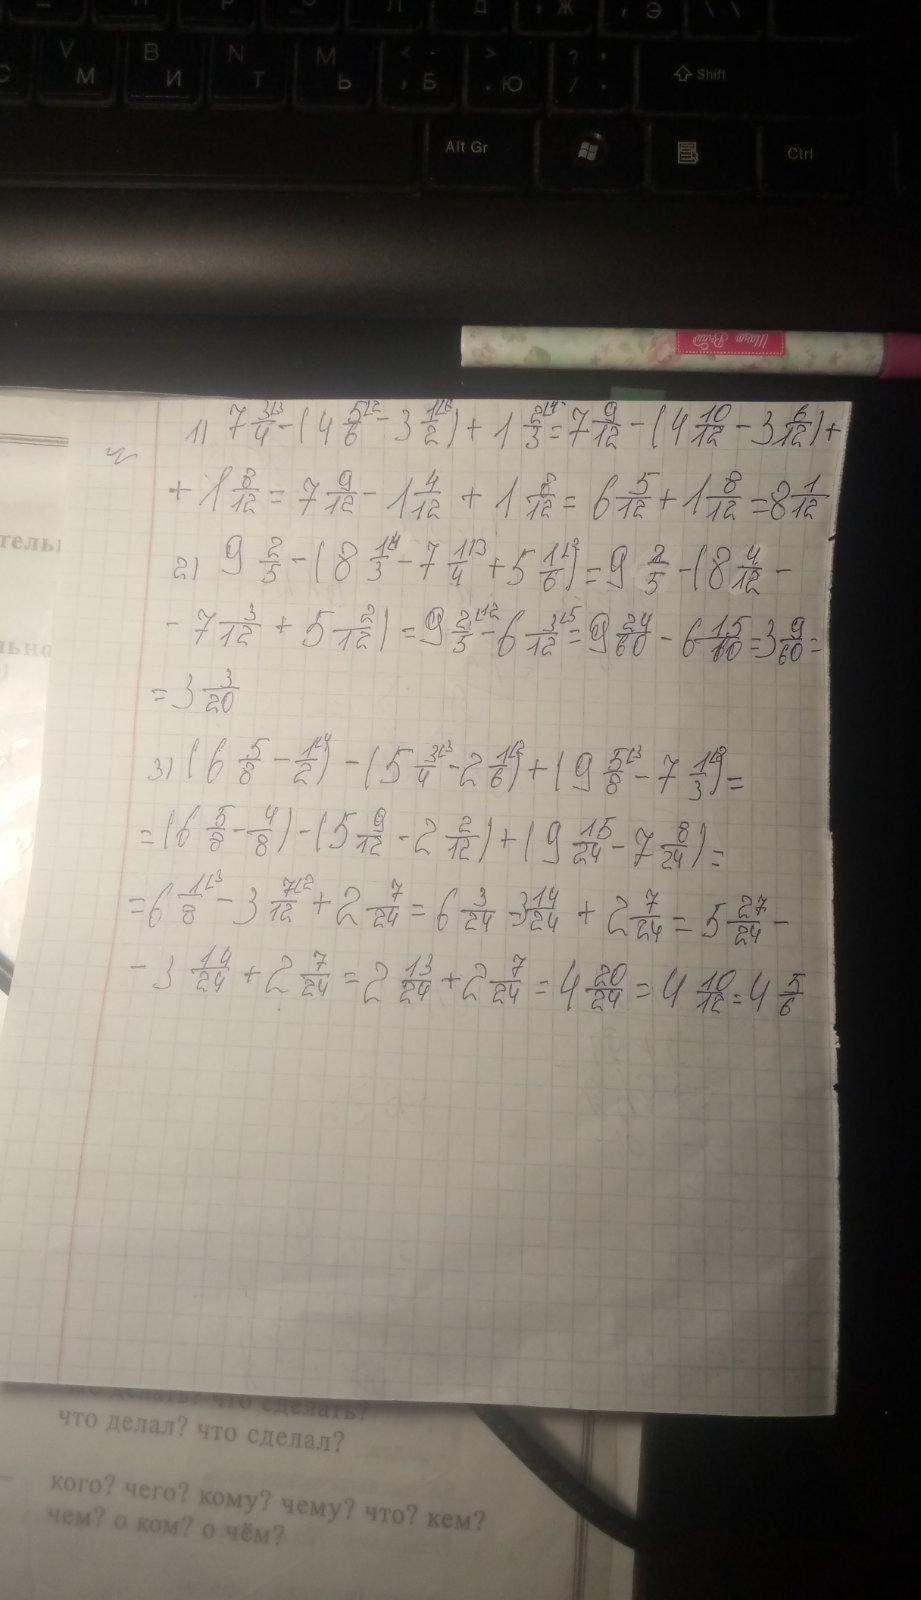 Л Д Ж Э \ \
С V М В И N Т М Ь < - , Б > . Ю ? / . Shift
Alt Gr Ctrl
1) 7 3/4 - (4 5/6 - 3 1/2) + 1 2/3 = 7 9/12 - (4 10/12 - 3 6/12) +
+ 1 8/12 = 7 9/12 - 1 4/12 + 1 8/12 = 6 5/12 + 1 8/12 = 8 1/12
2) 9 2/5 - (8 1/3 - 7 1/4 + 5 1/6) = 9 2/5 - (8 4/12 -
- 7 3/12 + 5 2/12) = 9 2/5 - 6 3/12 = 9 24/60 - 6 15/60 = 3 9/60 =
= 3 3/20
3) (6 5/8 - 1/2) - (5 3/4 - 2 1/6) + (9 5/8 - 7 1/3) =
= (6 5/8 - 4/8) - (5 9/12 - 2 2/12) + (9 15/24 - 7 8/24) =
= 6 1/8 - 3 7/12 + 2 7/24 = 6 3/24 - 3 14/24 + 2 7/24 = 5 27/24 -
- 3 14/24 + 2 7/24 = 2 13/24 + 2 7/24 = 4 20/24 = 4 10/12 = 4 5/6
что делать? что сделать?
что делал? что сделал?
кого? чего? кому? чему? что? кем?
чем? о ком? о чём?